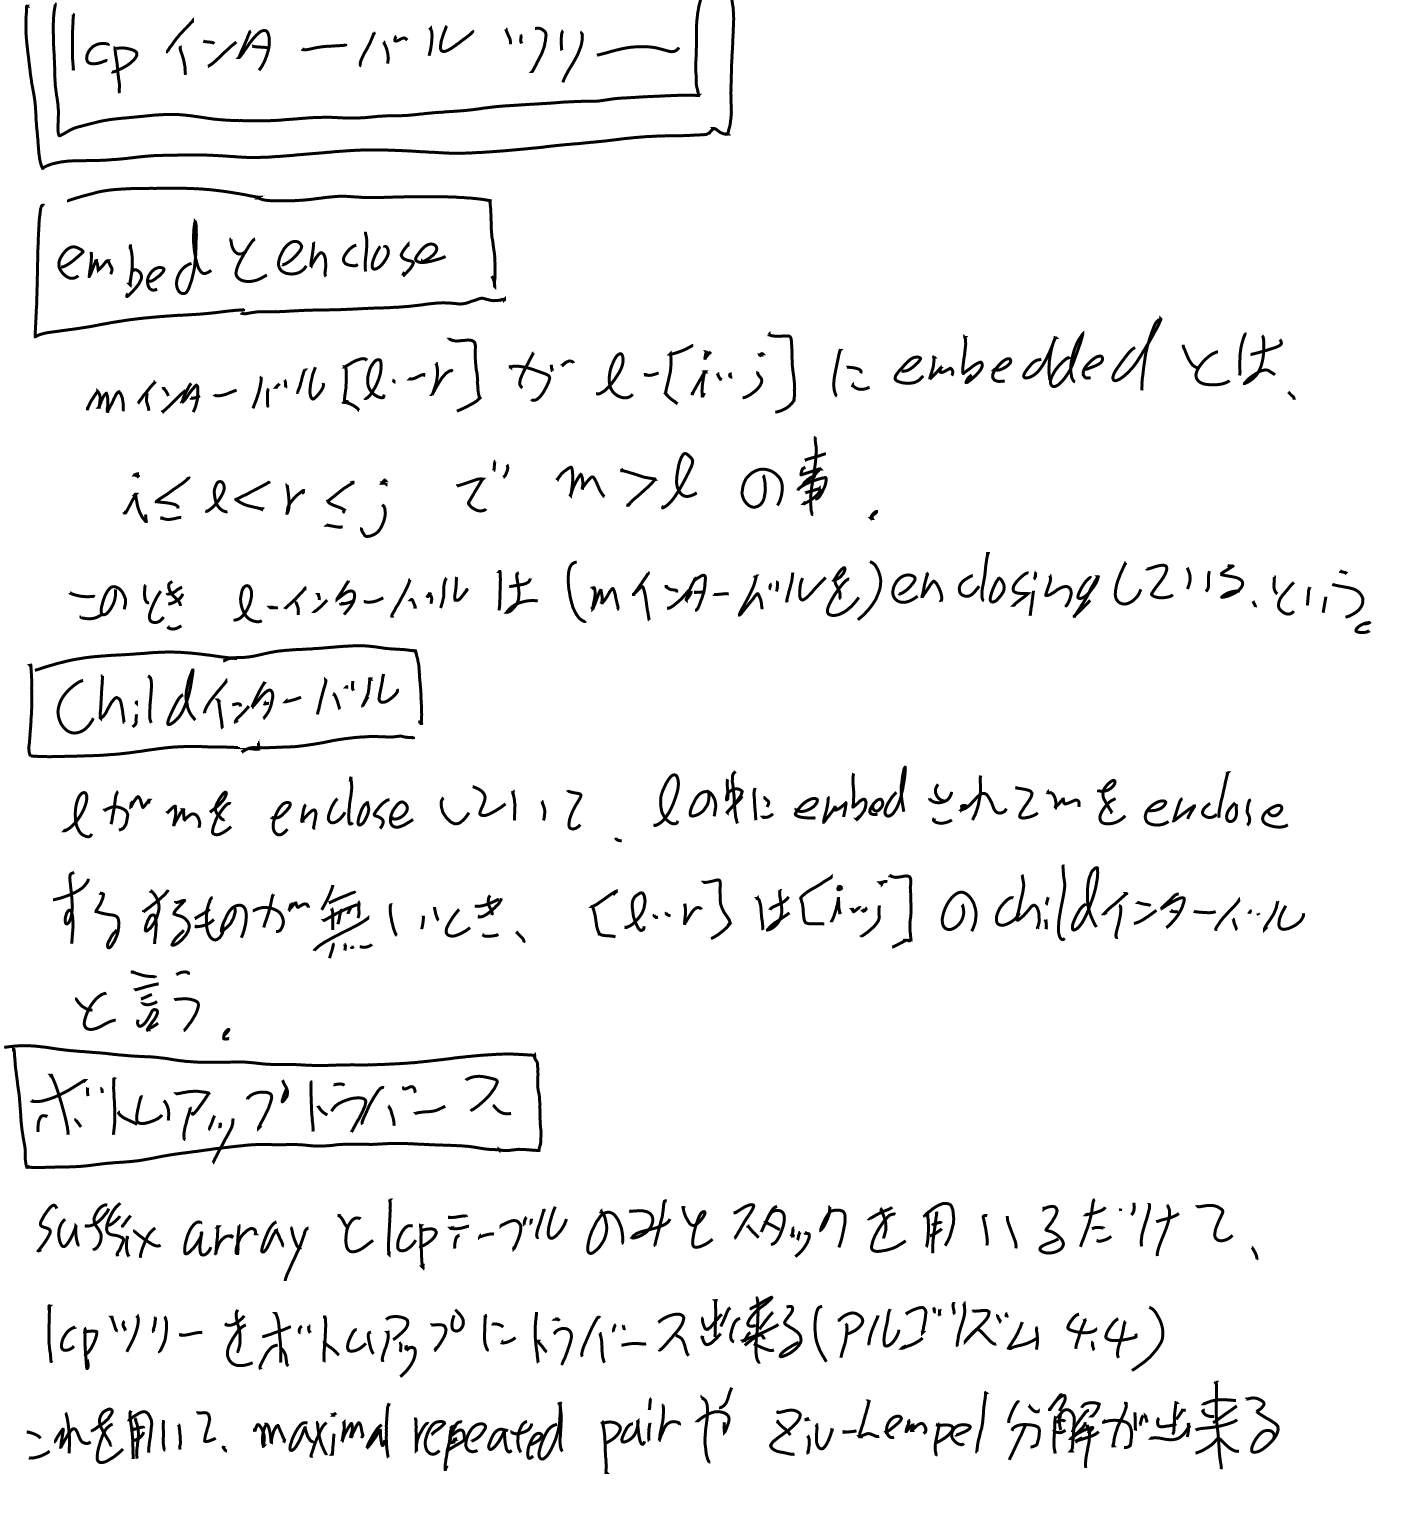 lcpインターバルツリー
embedとenclose
mインターバル[l..r]がl-[i..j]にembeddedとは、
i≤l<r≤jでm>lの事.
このときl-インターバルは(mインターバルを)enclosingしている、という。
Childインターバル
lがmをencloseしていて、lの中にembedされてmをenclose
するするものが無いとき、[l..r]は[i..j]のchildインターバル
と言う.
ボトムアップトラバース
suffix arrayとlcpテーブルのみとスタックを用いるだけで、
lcpツリーをボトムアップにトラバース出来る(アルゴリズム4.4)
これを用いて、maximal repeated pairやZiv-Lempel分解が出来る